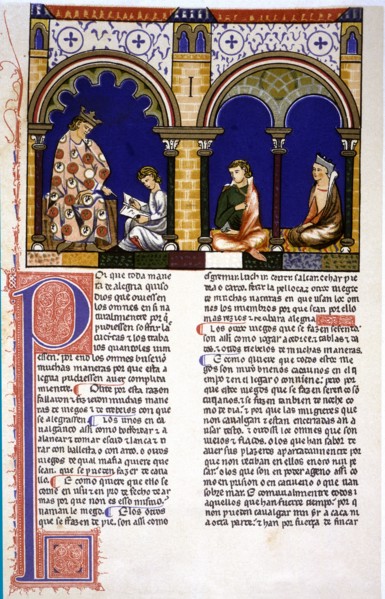 I
Por que toda mane
ra de alegria quiso
dios que ouiessen
los omnes en si na
turalmiente por q
pudiessen soffrir las
cueitas & los traba
ios quando les uini
essen. por end los omnes buscaron
muchas maneras por que esta a
legria pudiessen auer complida
miente. Onde por esta razon
fallaron & fizieron muchas mane
ras de iuegos & de trebeios con que
se alegrassen. Los unos en ca
ualgando assi como bofordar & a
lançar & tomar escud & lança & ti
rar con ballesta o con arco. o otros
iuegos de qual manera quiere que
sean. que se pueden fazer de caua
llo. E como quiere que ello se
torne en usu & en pro de fecho dar
mas por que non es esso mismo.
llaman le iuego. E los otros
que se fazen de pie. son assi como
esgremir. luchar. correr. saltar. echar piedra
o dardo. ferir la pellota. & otros iuegos
de muchas naturas en que usan los om
nes los miembros por que sean por ello
mas rezios & reciban alegria.
Los otros iuegos que se fazen seyendo.
son assi como iogar açedrex & tablas & da
dos. & otros trebeios de muchas maneras.
E como quiere que todos estos iue
gos son muy buenos cadaunos en el ti
empo & en el logar o conuiene. pero por
que estos iuegos que se fazen seyendo son
cutianos. & se fazen tambien de noche co
mo de dia. & por que las mugieres que
non caualgan & estan encerradas an a
usar desto. & otrossi los omnes que son
uieios & flacos. o los que han sabor de
auer sus plazeres apartadamiente por
que non reciban en ellos enoio nin pe
sar. o los que son en poder ageno assi co
mo en prision o en catiuerio o que uan
sobre mar. E comunalmiente todos
aquellos que han fuerte tiempo. por q
non pueden caualgar nin yr a caça ni
a otra parte. & han por fuerça de fincar